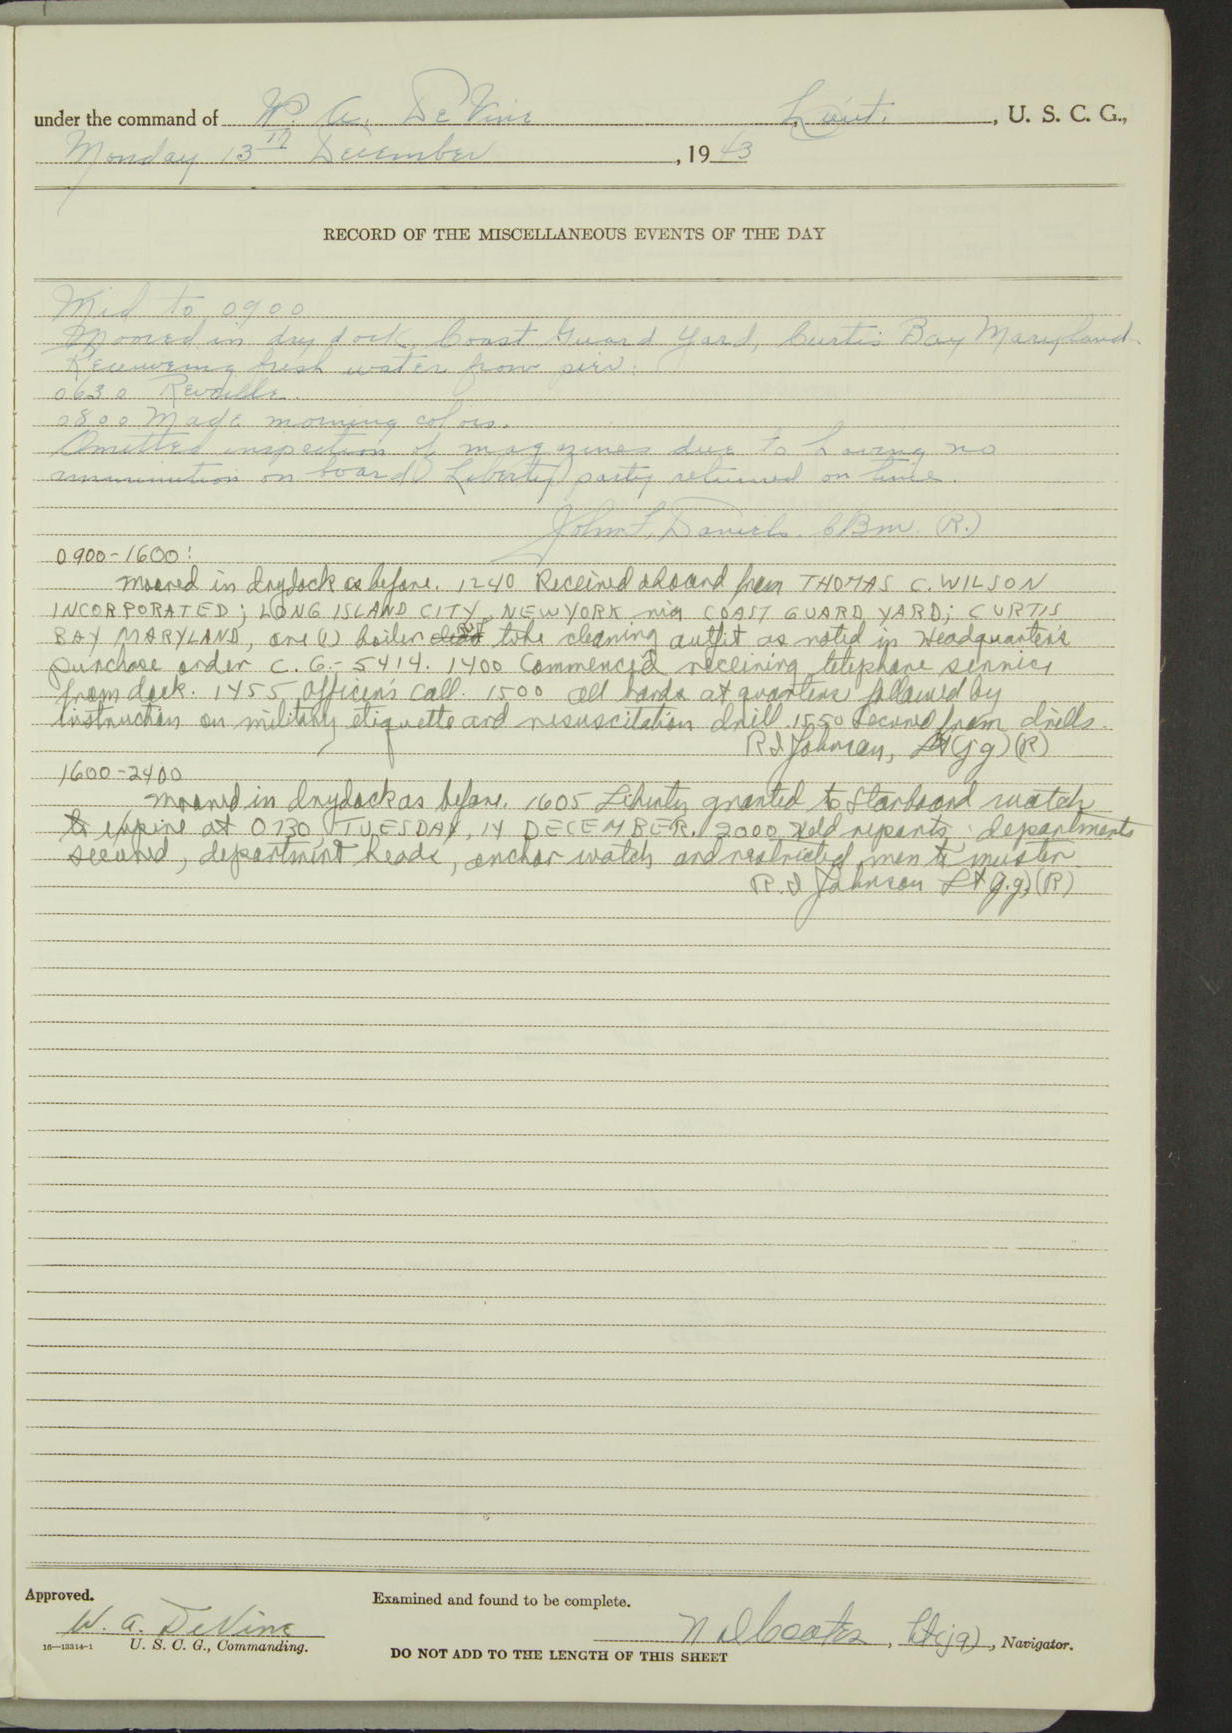 under the command of W. A. DeVine Lieut., U. S. C. G.,
Monday 13th December, 1943
RECORD OF THE MISCELLANEOUS EVENTS OF THE DAY
Mid to 0900
Moored in dry dock, Coast Guard Yard, Curtis Bay Maryland
Receiveing fresh water from pier.
0630 Reveille.
0800 Made morning colors.
Omitted inspection of magazines due to having no
ammunition on board. Liberty party returned on time.
John F. Daniels. CBM. (R.)
0900-1600:
Moored in drydock as before. 1240 Received aboard from THOMAS C. WILSON
INCORPORATED; LONG ISLAND CITY, NEW YORK via COAST GUARD YARD; CURTIS
BAY MARYLAND, one (1) boiler tube cleaning outfit as noted in Headquarter's
purchase order C.G.-5414. 1400 Commenced receiving telephone service
from dock. 1455 Officer's Call. 1500 All hands at quarters followed by
instruction on military etiquette and resuscitation drill. 1550 Secured from drills.
R I Johnson, Lt(jg)(R)
1600-2400
Moored in drydock as before. 1605 Liberty granted to Starboard watch
to expire at 0730, TUESDAY, 14 DECEMBER. 2000 Held reports: departments
secured, department heads, anchor watch and restricted men to muster.
R. I Johnson Lt(j.g)(R)
Approved.
W. A. DeVine
16—13314-1 U. S. C. G., Commanding.
Examined and found to be complete.
Coates, Lt(jg), Navigator.
DO NOT ADD TO THE LENGTH OF THIS SHEET